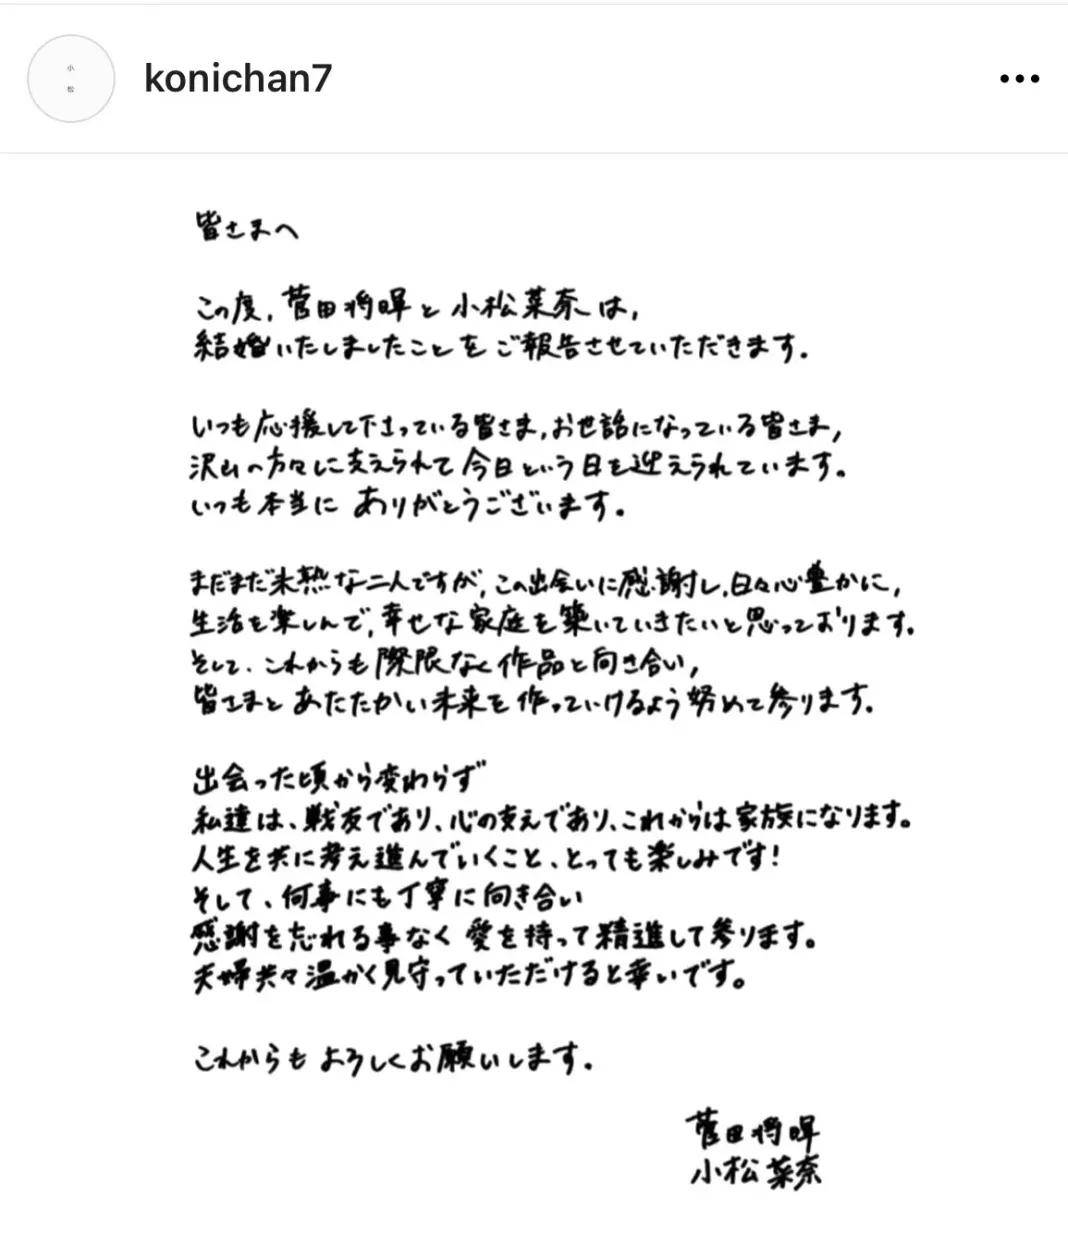 小
松
konichan7
皆さまへ
この度、菅田将暉と小松菜奈は、
結婚いたしましたことをご報告させていただきます。
いつも応援して下さっている皆さま、お世話になっている皆さま、
沢山の方々に支えられて今日という日を迎えられています。
いつも本当に ありがとうございます。
まだまだ未熟な二人ですが、この出会いに感謝し、日々心豊かに、
生活を楽しんで、幸せな家庭を築いていきたいと思っております。
そして、これからも際限なく作品と向き合い、
皆さまと あたたかい未来を作っていけるよう努めて参ります。
出会った頃から変わらず
私達は、戦友であり、心の支えであり、これからは家族になります。
人生を共に考え進んでいくこと、とっても楽しみです!
そして、何事にも丁寧に向き合い
感謝を忘れる事なく 愛を持って精進して参ります。
夫婦共々温かく見守っていただけると幸いです。
これからも よろしくお願いします。
菅田将暉
小松菜奈